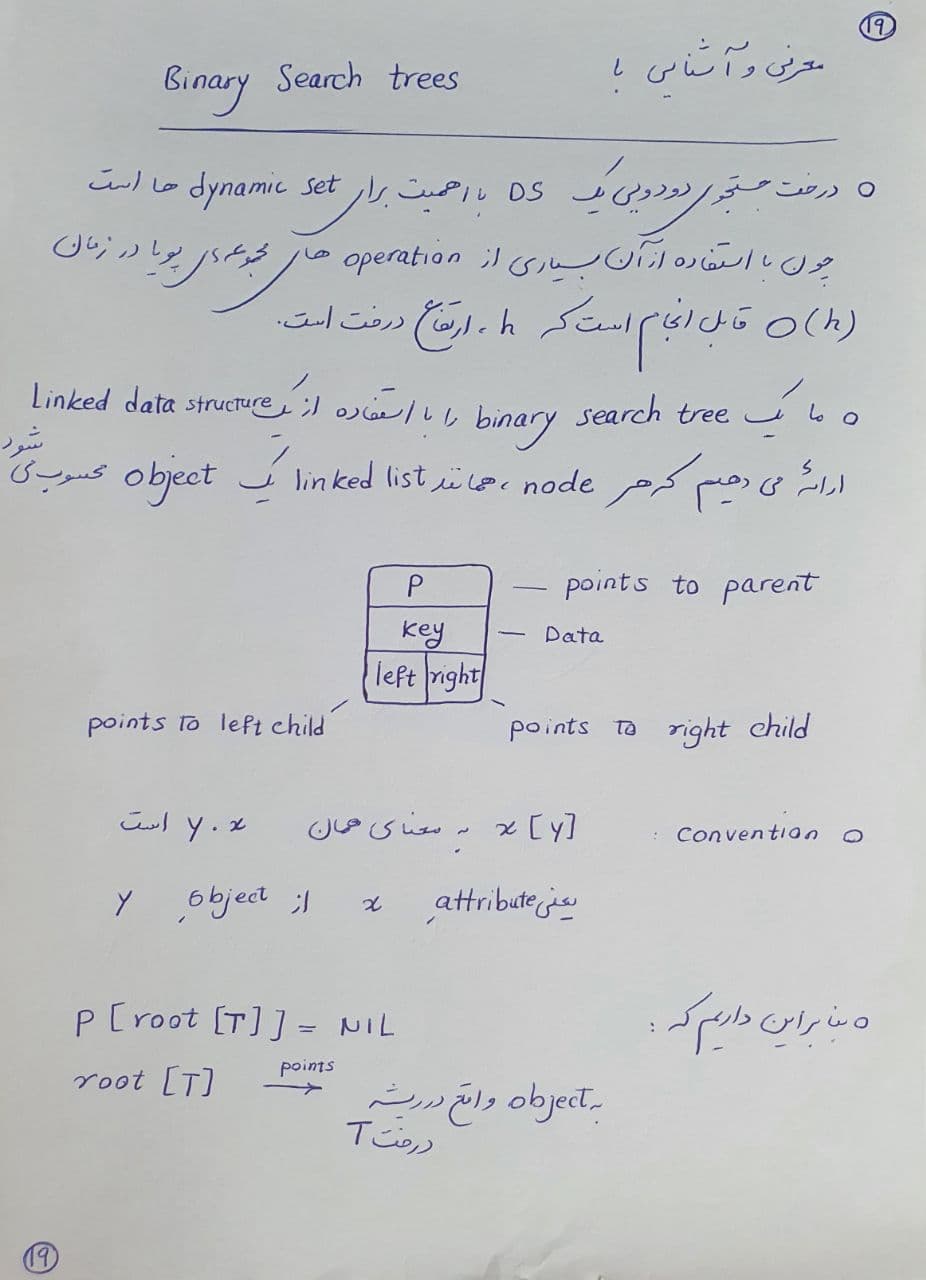 ۱۹
معرفی و آشنایی با Binary Search trees
o درخت جستجوی دودویی یک DS با اهمیت برای dynamic set ها است
چون با استفاده از آن بسیاری از operation های مجموعه‌ی پویا در زمان
O(h) قابل انجام است که h، ارتفاع درخت است.
o ما یک binary search tree را با استفاده از یک Linked data structure
ارائه می دهیم که هر node، همانند linked list یک object محسوب می شود
P — points to parent
key — Data
left right
points To left child
points To right child
o convention : x[y] به معنای همان y.x است
یعنی attribute ِ x از object ِ y
o بنابراین داریم که : P[root[T]] = NIL
root [T] points → به object واقع در ریشه
درخت T
۱۹